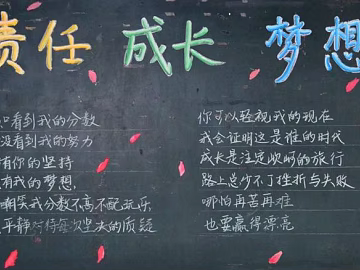 责任 成长 梦想
只看到我的分数
没看到我的努力
有你的坚持
有我的梦想
嘲笑我分数不高不配玩乐
平静对待每次坐大的质疑
你可以轻视我的现在
我会证明这是谁的时代
成长是注定烦恼的旅行
路上总少不了挫折与失败
哪怕再苦再难
也要赢得漂亮